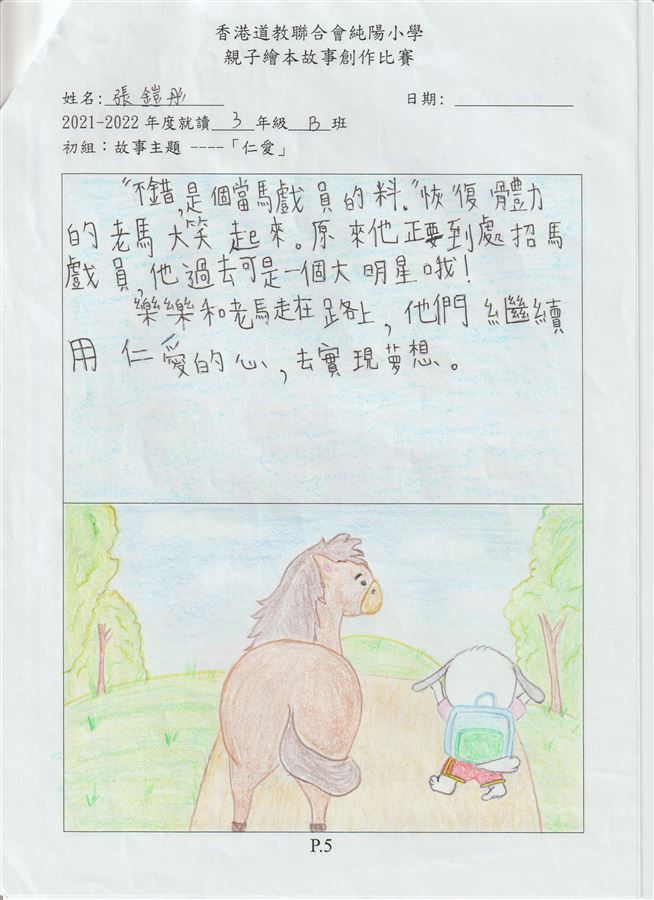 香港道教聯合會純陽小學
親子繪本故事創作比賽
姓名: 張鎧彤 日期:
2021-2022 年度就讀 3 年級 B 班
初組：故事主題 ----「仁愛」
"不錯,是個當馬戲員的料."恢復體力
的老馬大笑起來。原來他正要到處招馬
戲員,他過去可是一個大明星哦!
樂樂和老馬走在路上,他們繼續
用仁愛的心,去實現夢想。
P.5